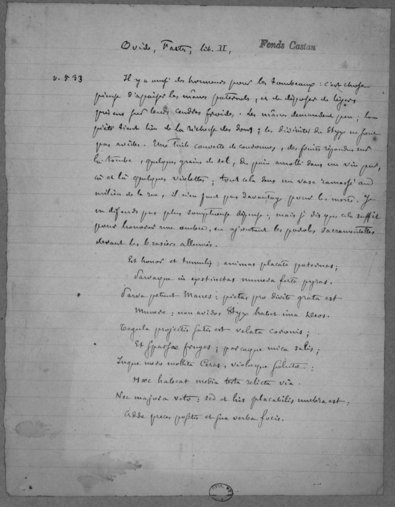 Ovide, Fastes, lib. II,
Fonds Castan
v. 533
Il y a aussi des honneurs pour les tombeaux : c'est chose
pieuse d'apaiser les mânes paternels, et de déposer de légers
présens sur leurs cendres froides. Les mânes demandent peu ; leur
piété tient lieu de la richesse des dons ; les divinités du Styx ne sont
pas avides. Une tuile couverte de couronnes, des fruits répandus sur
la tombe, quelques grains de sel, du pain amolli dans un vin pur,
çà et là quelques violettes ; tout cela dans un vase ramassé au
milieu de la rue, il n'en faut pas davantage pour les morts. Je
ne défends pas plus somptueux ; mais je dis que cela suffit
pour honorer une ombre, en ajoutant les paroles sacramentelles
devant les brasiers allumés.
Est honor et tumulis ; animas placate paternas ;
Parvaque in exstinctas munera ferte pyras.
Parva petunt Manes : pietas pro divite grata est
Munere ; non avidos Styx habet ima Deos.
Tegula projectis satis est velata coronis ;
Et sparsæ fruges ; parcaque mica salis ;
Inque mero mollita Ceres, violæque solutæ :
Hæc habeat media testa relicta via.
Nec majora veto ; sed et his placabilis umbra est ;
Adde preces positis et sua verba focis.